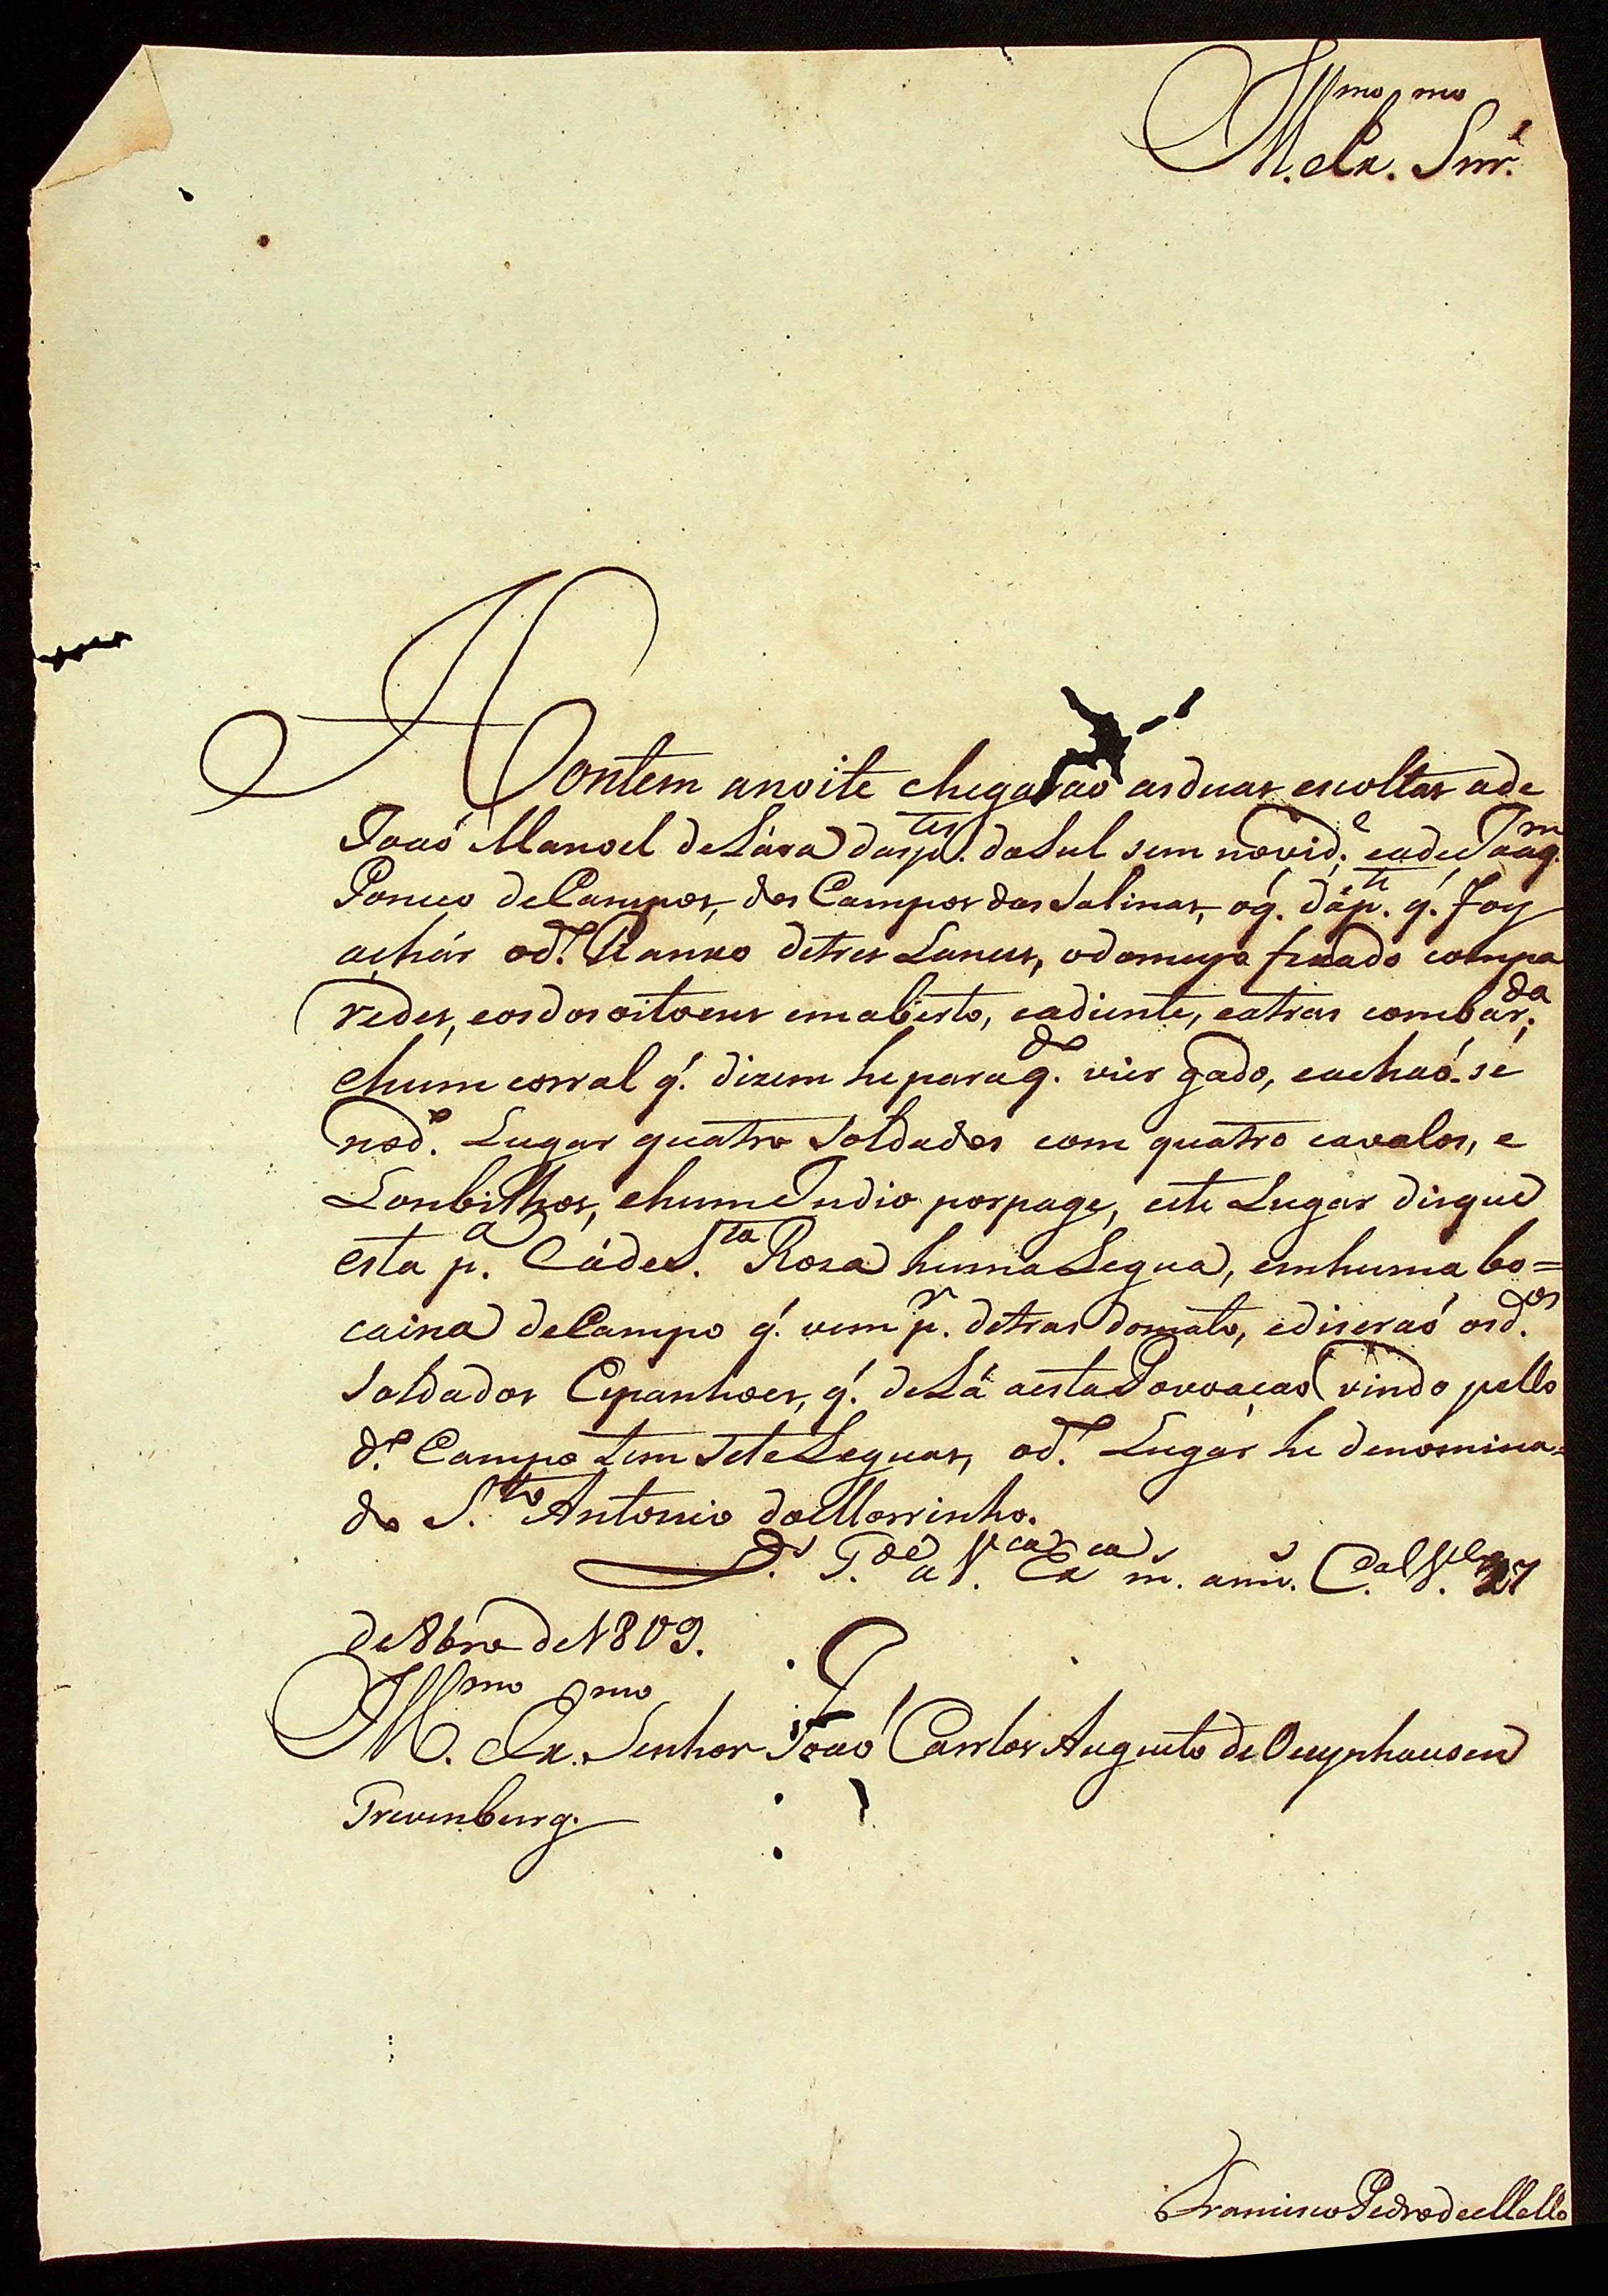 Ill.mo Ex.mo Snr.
Hontem anoite chegarão as duas escoltas a de
João Manoel de Lára das p.tes do Sul sem novid.e, e a de Joaq.m
Ponces de Campos, dos Campos das Salinas, o q. dá p.te q. foy
achár o d.o Ranxo de tres Lances, o do meyo fixado com pa
redes, e os dos oitoens em aberto, e a diente, e atras com bar.da
e hum corral q. dizem he para q.do vier gado, e achaó-se
no d.o Lugar quatro Soldados com quatro cavalos, e
Lonbilhos, e hum Indio por page, este Lugar disque
esta p.a Cá de S.ta Rosa huma Legua, em huma bo=
caina de Campo q. vem p.r detras do mato, e diseraó os d.os
Soldados Espanhoes, q. de Lá a esta Povoação vindo pello
d.o Campo tem sete Leguas, o d.o Lugar he denomina=
do S.to Antonio do Morrinho.
D.s G.de a V. Ex.ca m. ann.s C.dal V.la 27
de 8bro de 1809.
Ill.mo Ex.mo Senhor João Carlos Augusto de Oeynhausen
Grevenburg.
Francisco Pedro de Mello